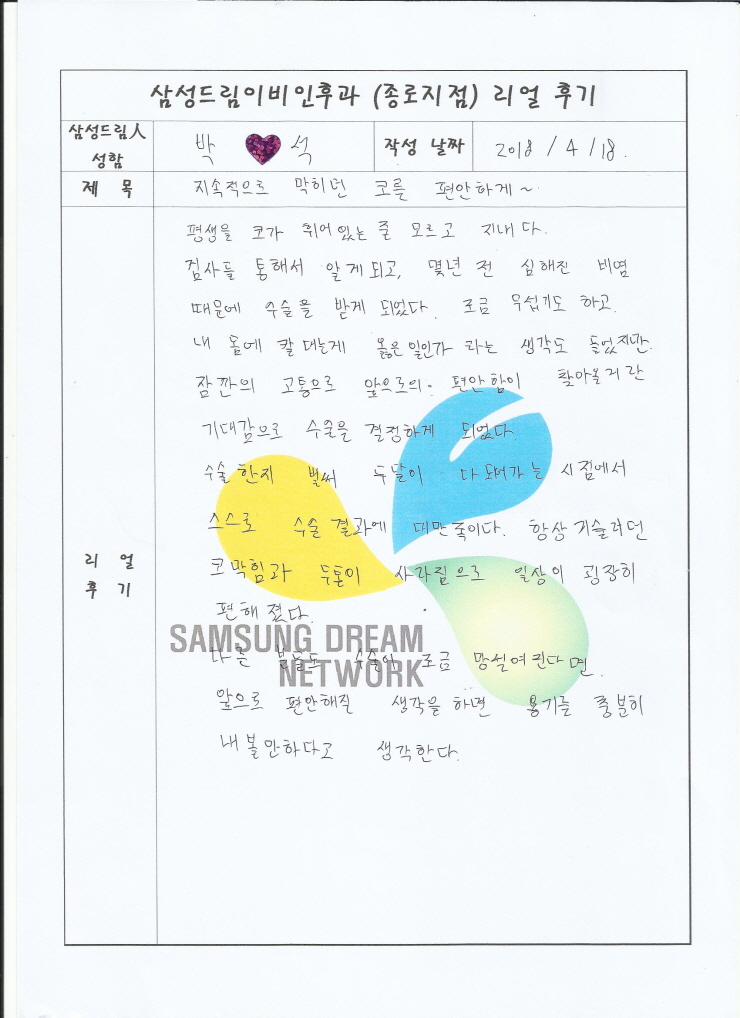 삼성드림이비인후과 (종로지점) 리얼 후기
삼성드림人 성함
박 석
작성 날짜
2018 / 4 / 18.
제 목
지속적으로 막히던 코를 편안하게~
리 얼 후 기
평생을 코가 휘어있는 줄 모르고 지내다.
검사를 통해서 알게되고, 몇년 전 심해진 비염
때문에 수술을 받게 되었다. 조금 무섭기도 하고.
내 몸에 칼 대는게 옳은 일인가 라는 생각도 들었지만.
잠깐의 고통으로 앞으로의 편안함이 찾아올거란
기대감으로 수술을 결정하게 되었다
수술한지 벌써 두달이 다 되어가는 시점에서
스스로 수술 결과에 대만족이다. 항상 거슬리던
코막힘과 두통이 사라짐으로 일상이 굉장히
편해졌다.
다른 분들도 수술이 조금 망설여진다면.
앞으로 편안해질 생각을 하면 용기를 충분히
내볼만하다고 생각한다.
SAMSUNG DREAM
NETWORK